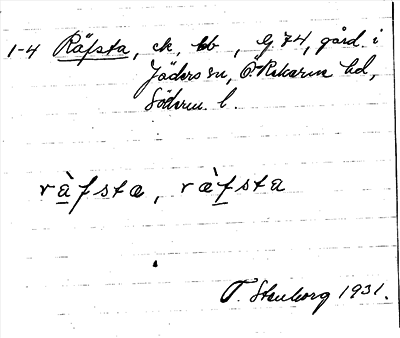 1-4 Räfsta, ck, bb, Eg 74, gård. i
Jäders sn, Ö-Rekarne hd,
Söderm. l.
ràfsta, ræ̀fsta
T. Stenborg 1931.